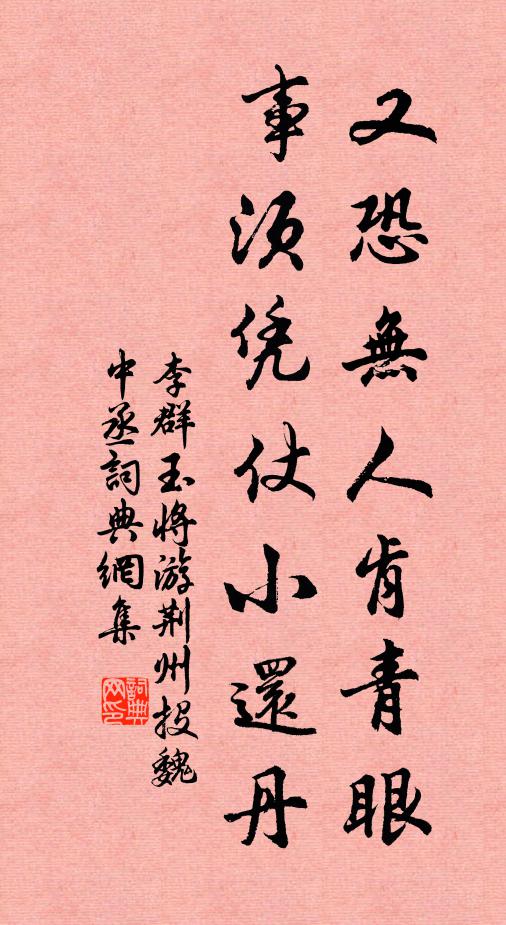 又恐無人肯青眼
事須凭仗小還丹
李群玉將游荆州投魏
中丞詞典網集
詞典
网印